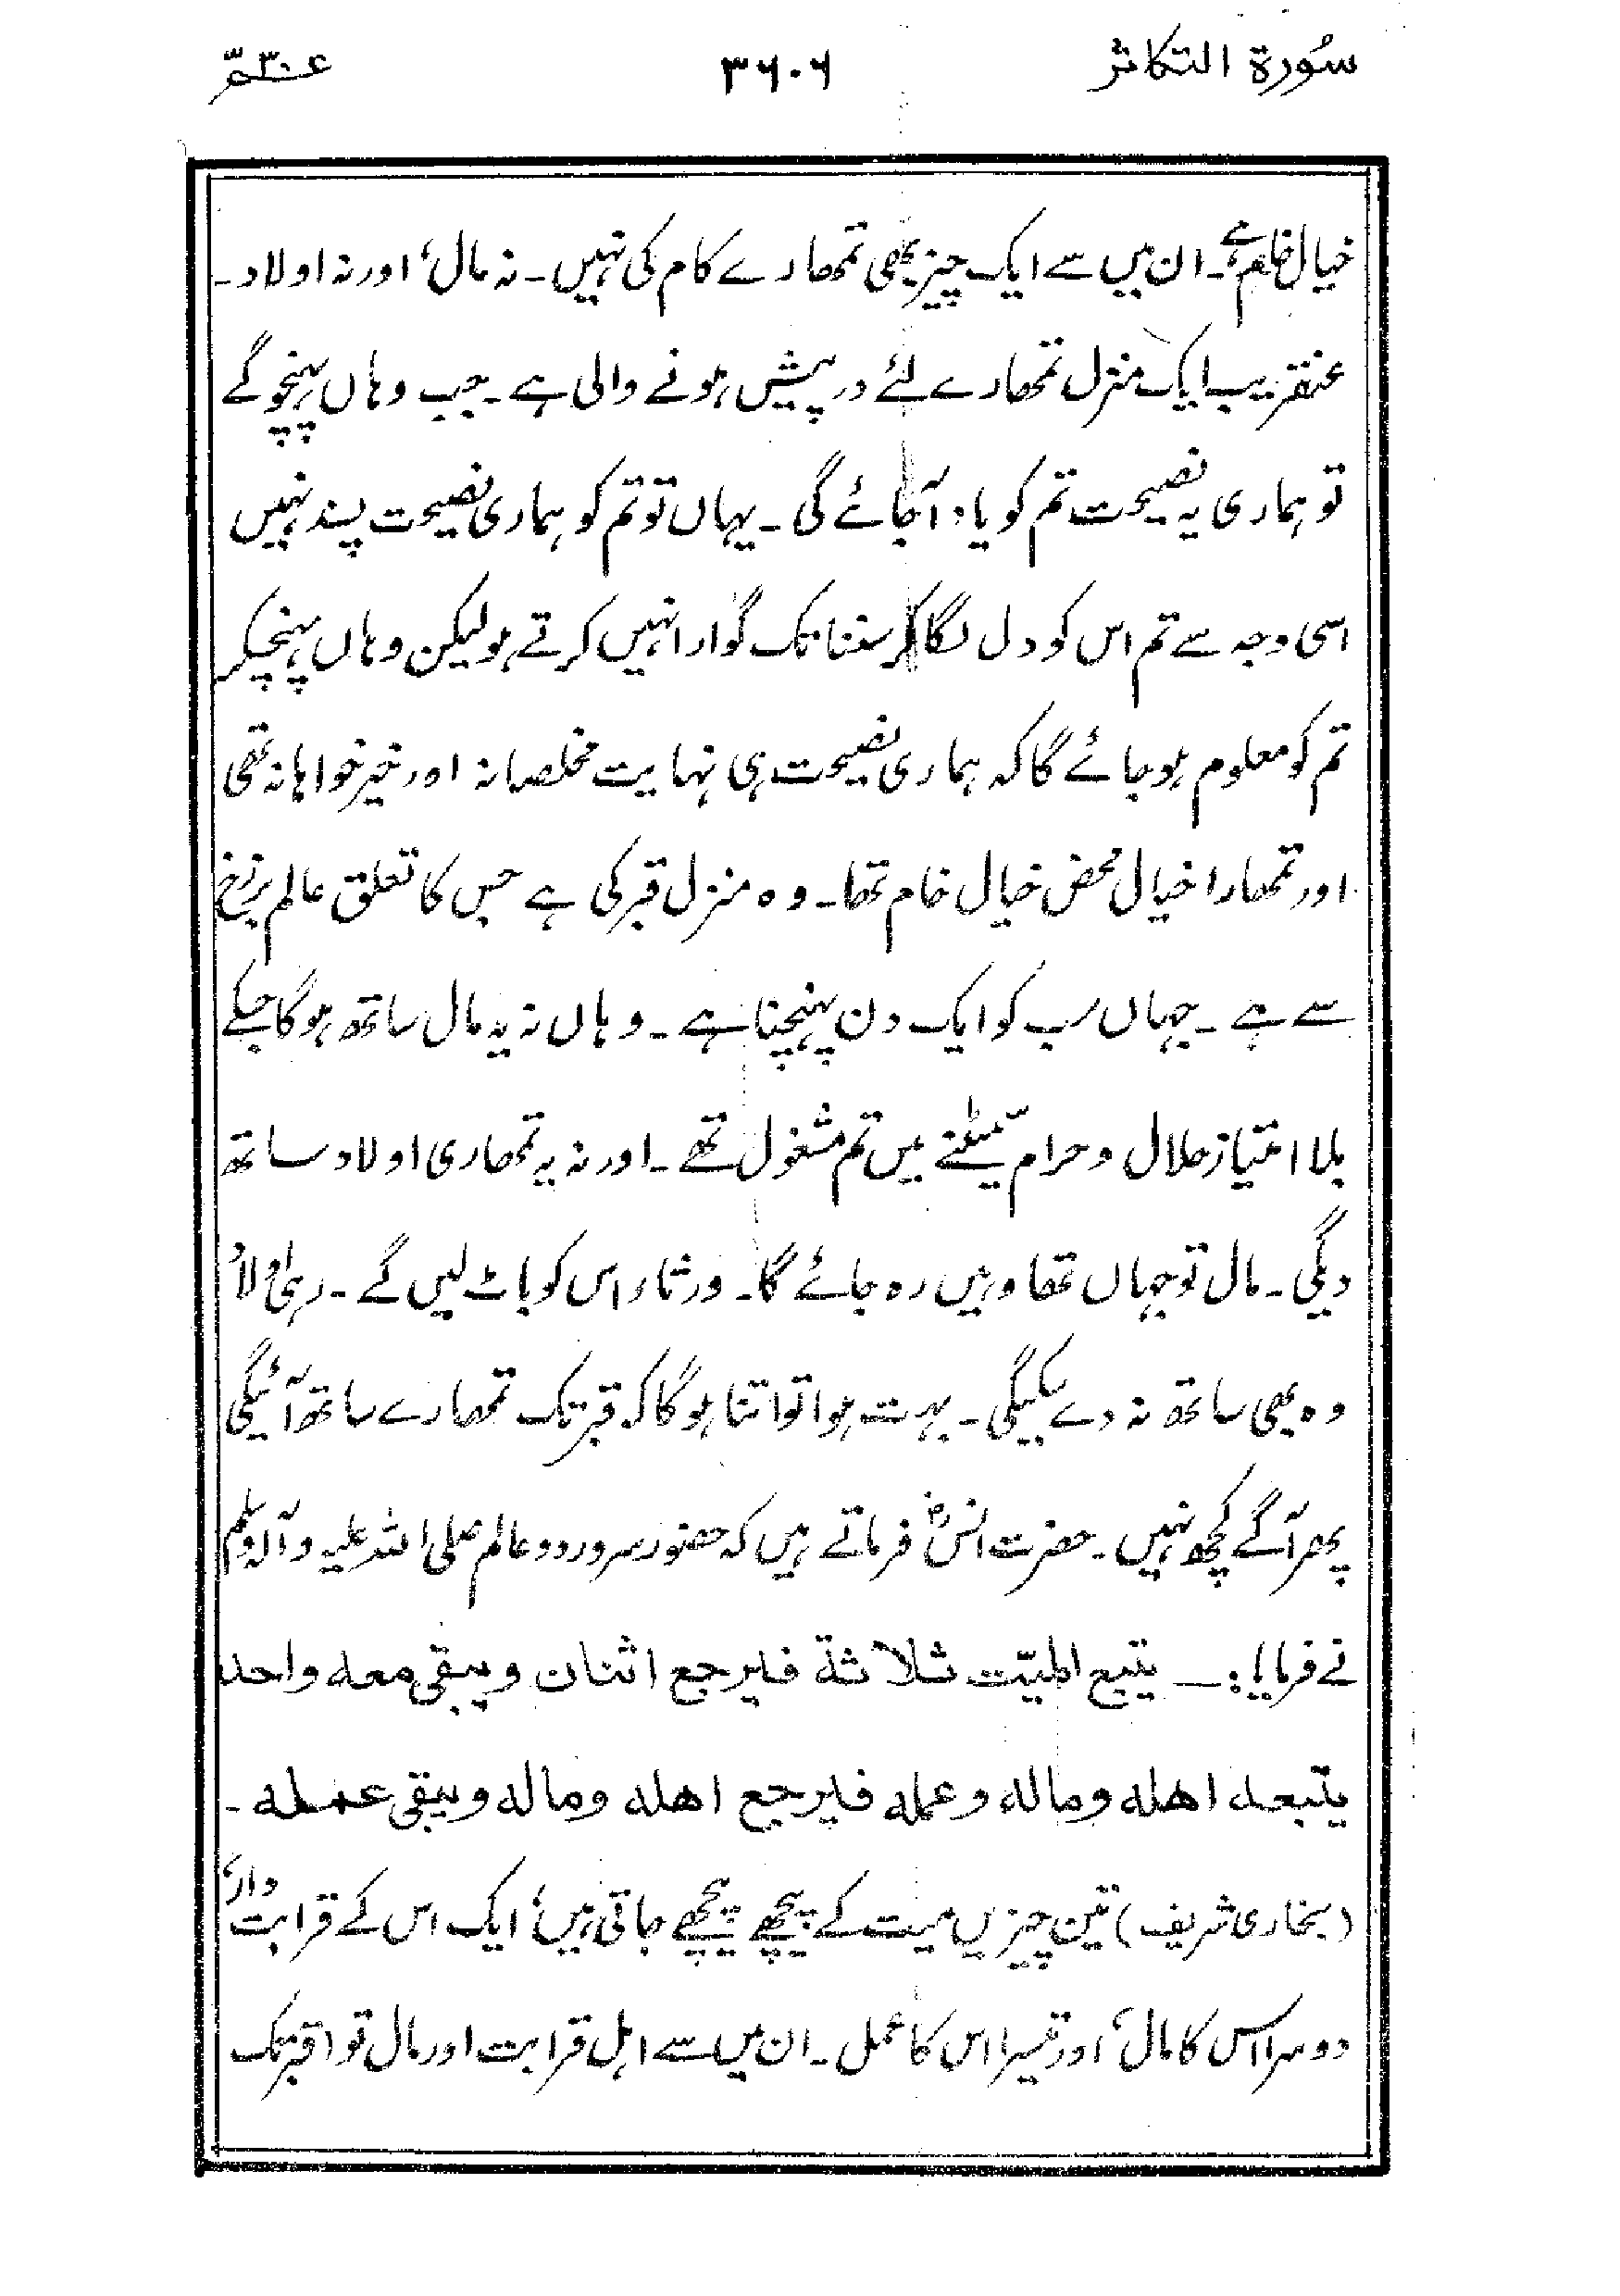 سُورۃ التکاثر ۳۶۰۶ عمّ ۳۰
خیال خام ہے۔ ان میں سے ایک چیز بھی تمھارے کام کی نہیں۔ نہ مال، اور نہ اولاد۔
عنقریب ایک منزل تمھارے لئے درپیش ہونے والی ہے۔ جب وہاں پہنچو گے
تو ہماری یہ نصیحت تم کو یاد آجائے گی۔ یہاں تو تم کو ہماری نصیحت پسند نہیں
اسی وجہ سے تم اس کو دل لگا کر سننا تک گوارا نہیں کرتے ہو لیکن وہاں پہنچکر
تم کو معلوم ہو جائے گا کہ ہماری نصیحت ہی نہایت مخلصانہ اور خیر خواہانہ تھی
اور تمھارا خیال محض خیال خام تھا۔ وہ منزل قبر کی ہے جس کا تعلق عالم برزخ
سے ہے۔ جہاں سب کو ایک دن پہنچنا ہے۔ وہاں نہ یہ مال ساتھ ہوگا جسکے
بلا امتیاز حلال و حرام سمیٹنے میں تم مشغول تھے۔ اور نہ یہ تمھاری اولاد ساتھ
دیگی۔ مال تو جہاں تھا وہیں رہ جائے گا۔ ورثاء اس کو باٹ لیں گے۔ رہی اولاد
وہ بھی ساتھ نہ دے سکیگی۔ بہت ہوا تو اتنا ہوگا کہ قبر تک تمھارے ساتھ آئیگی
پھر آگے کچھ نہیں۔ حضرت انسؓ فرماتے ہیں کہ حضور سرور دو عالم صلی اللہ علیہ وآلہ وسلم
نے فرمایا:۔ یتبع المیّت ثلاثة فیرجع اثنان ویبقی معه واحد
یتبعه اهله وماله وعمله فیرجع اهله وماله ویبقی عمله۔
(بخاری شریف) تین چیزیں میت کے پیچھے پیچھے جاتی ہیں، ایک اس کے قرابت دار،
دوسرا اس کا مال، اور تیسرا اس کا عمل۔ ان میں سے اہل قرابت اور مال تو (قبر تک